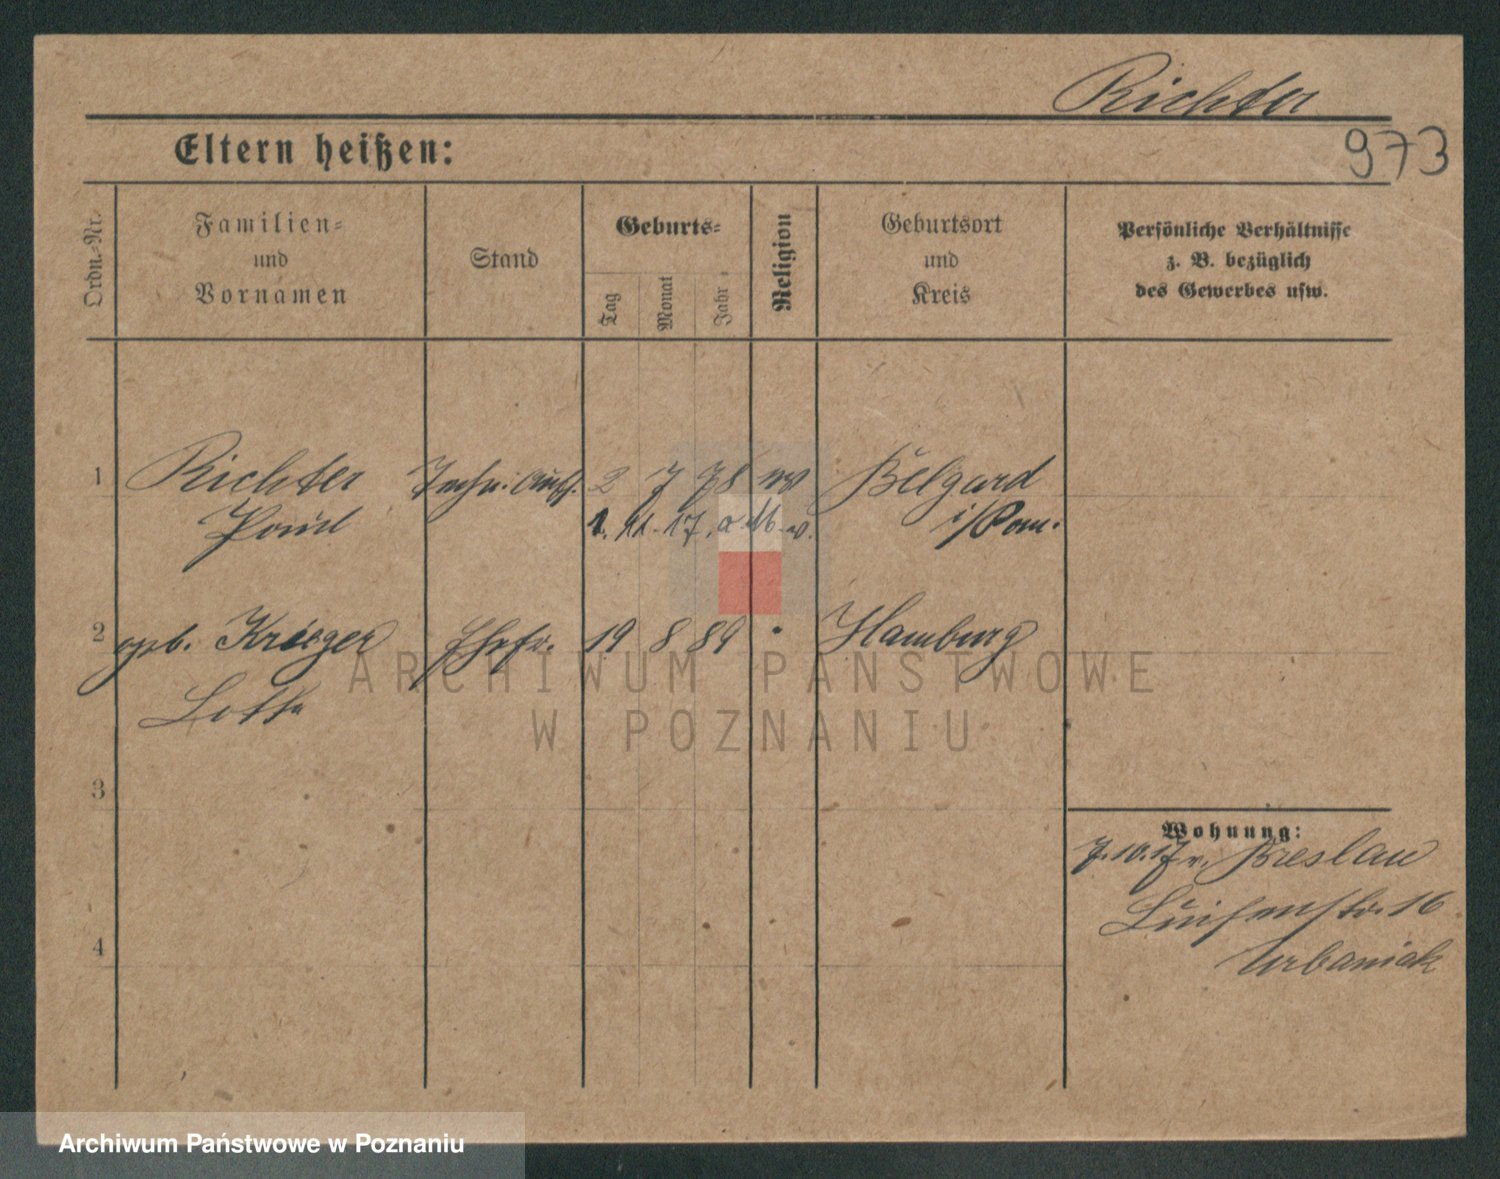 Richter
973
Eltern heißen:
Ordn.-Nr.
Familien-
und
Vornamen
Stand
Geburts-
Tag
Monat
Jahr
Religion
Geburtsort
und
Kreis
Persönliche Verhältnisse
z. B. bezüglich
des Gewerbes usw.
1 Richter 2 7 78 Belgard
Paul 1. 11. 17. i/Pom.
2 geb. Krieger Ehefr. 19 8 89 Hamburg
Lotte
3
4
Wohnung:
7.10.17 v. Breslau
Luisenstr. 16
Urbaniak
ARCHIWUM PAŃSTWOWE
W POZNANIU
Archiwum Państwowe w Poznaniu